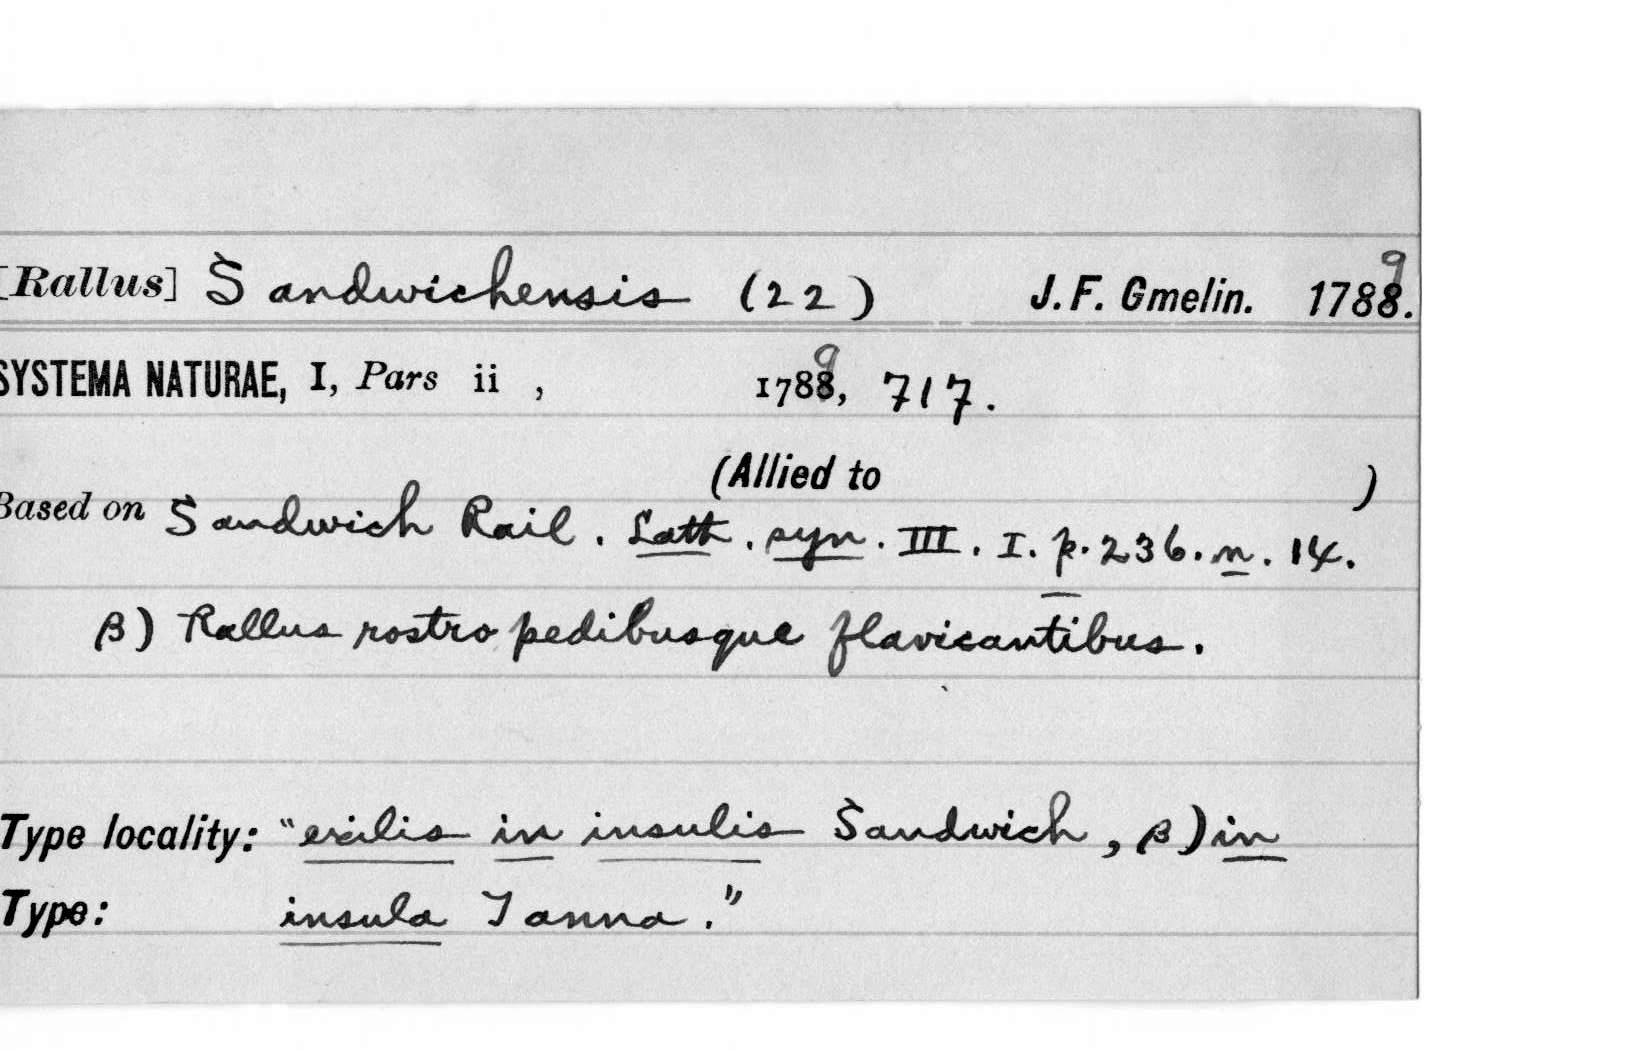 [Rallus] Sandwichensis (22) J. F. Gmelin. 1788. 9
SYSTEMA NATURAE, I, Pars ii , 1788, 9 717.
(Allied to )
Based on Sandwich Rail. Lath. syn. III. I. p. 236. n. 14.
β) Rallus rostro pedibusque flavicantibus.
Type locality: "exilis in insulis Sandwich, β) in
Type: insula Tanna."